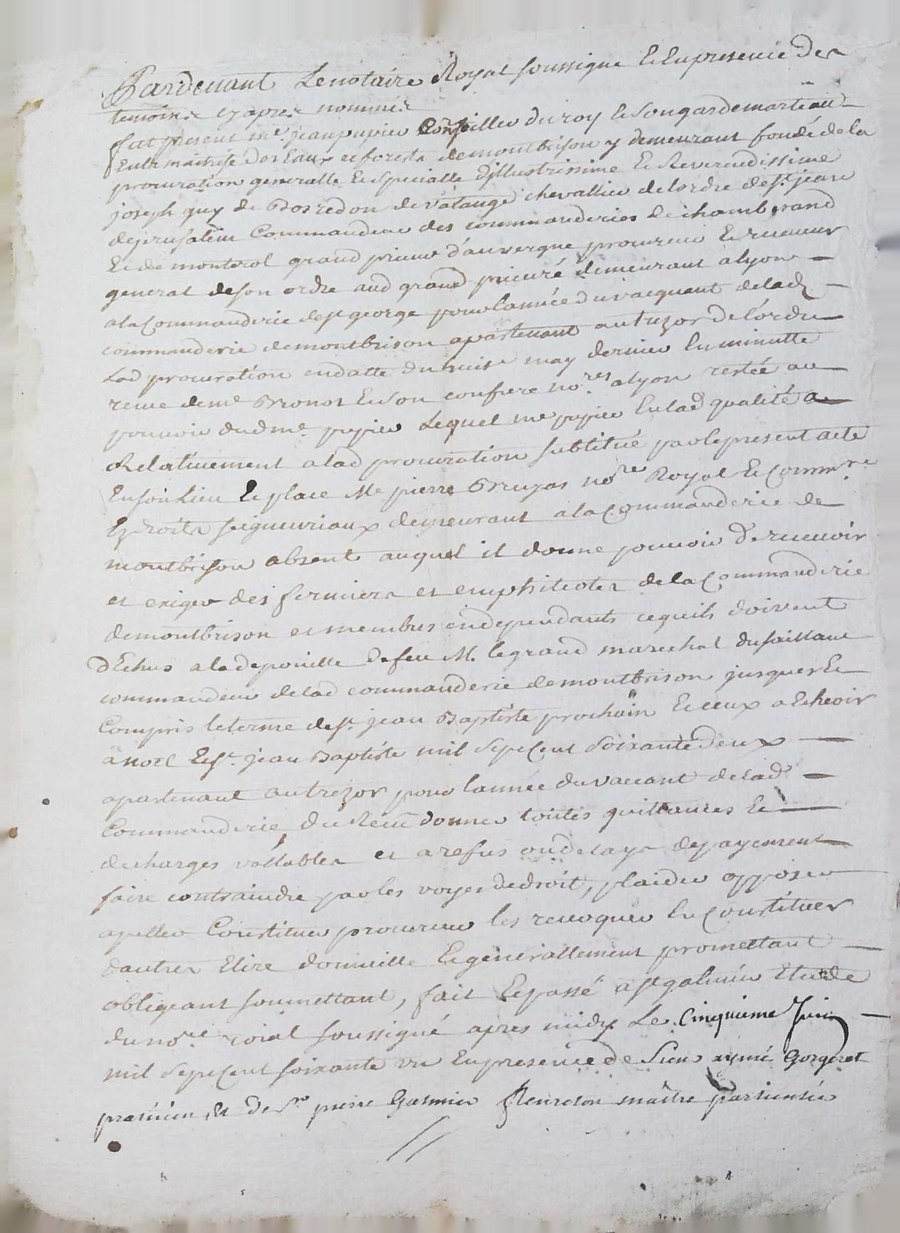 Pardevant Le notaire Royal soussigné Et En presence des
temoins cy apres nommés
fut present me jean pupier Conseiller du roy Et Son gardemarteau
En la maitrise des Eaux et forests de montbrison y demeurant fondé de la
procuration generalle Et Specialle d'illustrissime Et Reverendissime
joseph guy de Bosredon de vatange chevallier de lordre de st jean
de jerusalem Commandeur des commanderies de chamberaud
Et de monterol grand prieur d'auvergne procureur Et receveur
general de son ordre aud grand prieuré demeurant a lyon
a la Commanderie de st george pour lannée du vacquant de lad
commanderie de montbrison apartenant au trezor de l'ordre
Lad procuration en datte du huit may dernier La minutte
reçue de me Bronot Et Son confrere nores a lyon restée au
pouvoir dud me pupier Lequel me pupier En lad qualité a
Relativement a lad procuration subtitué par le present acte
En son Lieu Et place Me pierre Bruyas nore Royal Et Commre
Ez droits seigneuriaux demeurant a la Commanderie de
montbrison absent auquel il donne pouvoir de recevoir
et exiger des fermiers et emphiteotes de la Commanderie
de montbrison et membres en dependants ce quils doivent
d'Echus a la depouille de feu M. le grand marechal du saillant
commandeur de lad commanderie de montbrison jusques Et
Compris le terme de st. jean Baptiste prochain Et ceux a Echeoir
a noel Et st. jean Baptiste mil Sept Cent Soixante deux
apartenant au trezor pour lannée du vaccant de lad
Commanderie, du Recu donner toutes quittances Et
decharges vallables et a refus ou delays de payement
faire contraindre par les voyes de droit, plaider opposer
apeller Constituer procureur les revoquer En Constituer
dautres Elire domicille Et generallement promettant
obligeant soumettant, fait Et passé a st galmier Etude
du nore roial soussigné apres midy Le Cinquieme Juin
mil Sept Cent soixante un En presence de Sieur aymé Gorgeret
praticien, Et de Sr pierre Gasmier maitre